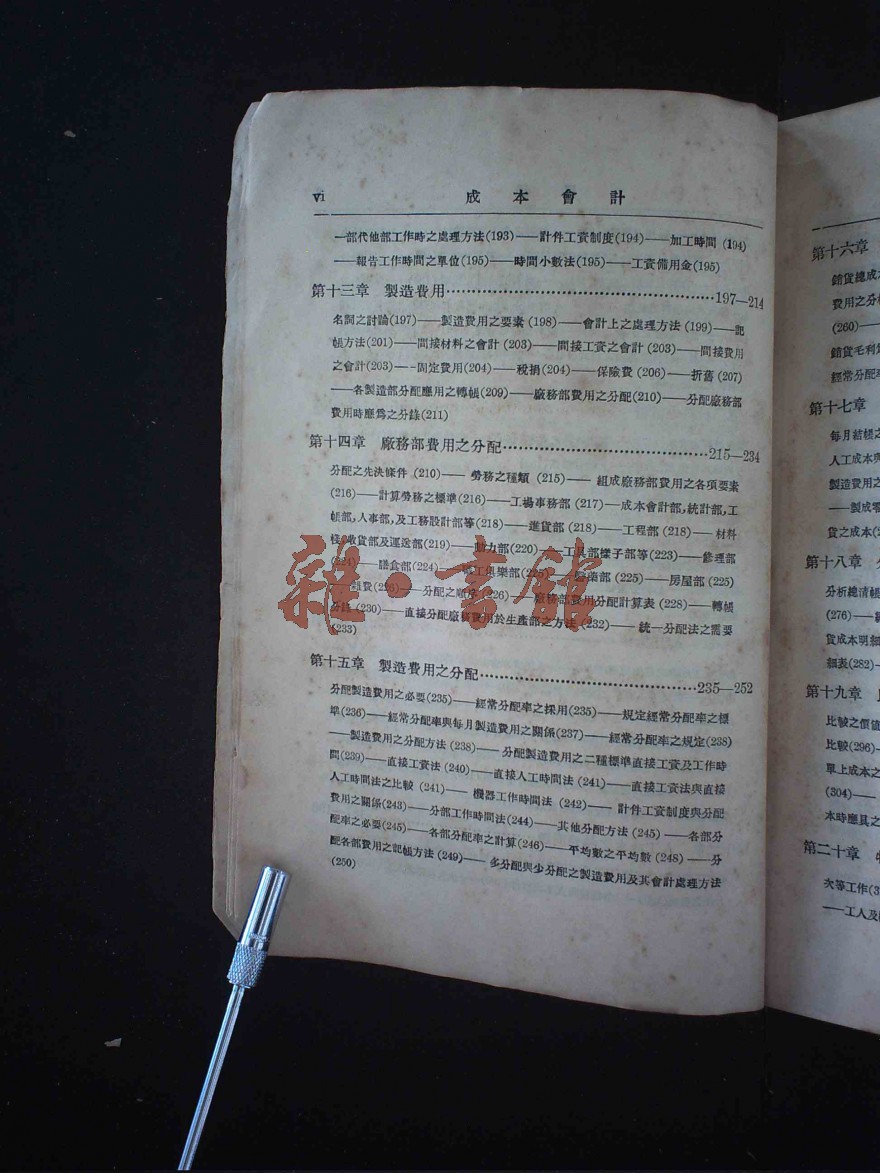 vi 成本會計
一部代他部工作時之處理方法(193)——計件工資制度(194)——加工時間(194)
——報告工作時間之單位(195)——時間小數法(195)——工資備用金(195)
第十三章 製造費用……197—214
名詞之討論(197)——製造費用之要素(198)——會計上之處理方法(199)——記
帳方法(201)——間接材料之會計(203)——間接工資之會計(203)——間接費用
之會計(203)——固定費用(204)——稅捐(204)——保險費(206)——折舊(207)
——各製造部分配應用之轉帳(209)——廠務部費用之分配(210)——分配廠務部
費用時應爲之分錄(211)
第十四章 廠務部費用之分配……215—234
分配之先決條件(210)——勞務之種類(215)——組成廠務部費用之各項要素
(216)——計算勞務之標準(216)——工場事務部(217)——成本會計部,統計部,工
帳部,人事部,及工務設計部等(218)——進貨部(218)——工程部(218)——材料
棧,收貨部及運送部(219)——動力部(220)——工具部樣子部等(223)——修理部
(224)——膳食部(224)——職工俱樂部(225)——醫藥部(225)——房屋部(225)
——雜費(226)——分配之順序(226)——廠務部費用分配計算表(228)——轉帳
分錄(230)——直接分配廠務費用於生產部之方法(232)——統一分配法之需要
(233)
第十五章 製造費用之分配……235—252
分配製造費用之必要(235)——經常分配率之採用(235)——規定經常分配率之標
準(236)——經常分配率與每月製造費用之關係(237)——經常分配率之規定(238)
——製造費用之分配方法(238)——分配製造費用之二種標準直接工資及工作時
間(239)——直接工資法(240)——直接人工時間法(241)——直接工資法與直接
人工時間法之比較(241)——機器工作時間法(242)——計件工資制度與分配
費用之關係(243)——分部工作時間法(244)——其他分配方法(245)——各部分
配率之必要(245)——各部分配率之計算(246)——平均數之平均數(248)——分
配各部費用之記帳方法(249)——多分配與少分配之製造費用及其會計處理方法
(250)
第十六章
銷貨總成
費用之分析
(260)——
銷貨毛利
經常分配率
第十七章
每月結帳之
人工成本與
製造費用之
——製成零
貨之成本(2
第十八章
分析總清帳
(276)——
貨成本明細
細表(282)—
第十九章
比較之價值
比較(296)—
單上成本之
(304)——
本時應具之
第二十章
次等工作(3
——工人及
雜·書館